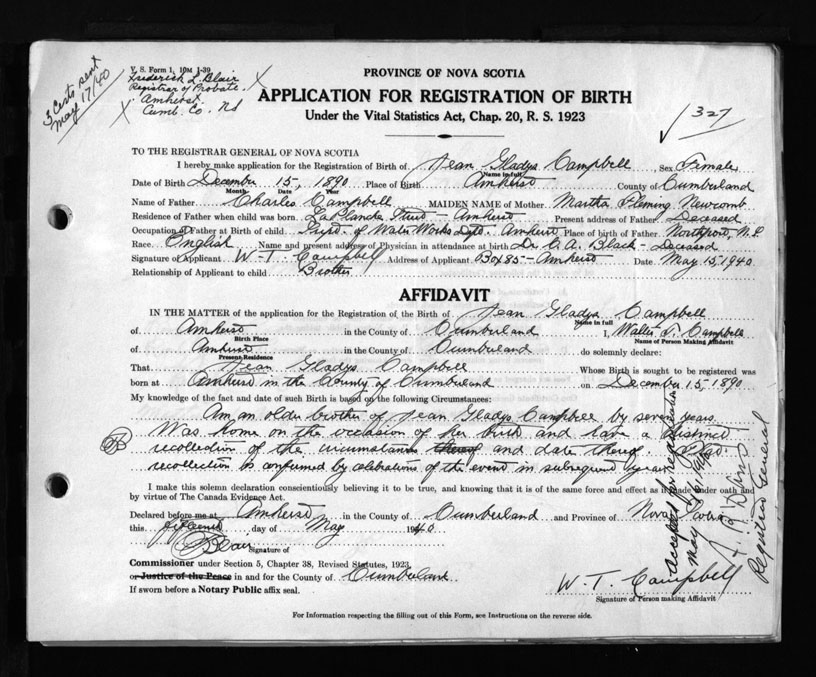 3 Certs sent
May 17/40
V. S. Form 1, 10M 1-39
Frederick L. Blair
Registrar of Probate
Amherst
Cumb. Co. NS
X X
PROVINCE OF NOVA SCOTIA
APPLICATION FOR REGISTRATION OF BIRTH
Under the Vital Statistics Act, Chap. 20, R. S. 1923
✓ 327
TO THE REGISTRAR GENERAL OF NOVA SCOTIA
I hereby make application for the Registration of Birth of Jean Gladys Campbell, Sex Female
Name in full
Date of Birth December 15, 1890 Place of Birth Amherst County of Cumberland
Month Date Year
Name of Father Charles Campbell MAIDEN NAME of Mother Martha Fleming Newcomb
Residence of Father when child was born LaPlanche Street - Amherst Present address of Father Deceased
Occupation of Father at Birth of child Supt. of Water Works Dept. Amherst Place of birth of Father Northport, N.S.
Race English Name and present address of Physician in attendance at birth Dr. C. A. Black - Deceased
Signature of Applicant W. T. Campbell Address of Applicant Box 85 - Amherst Date May 15, 1940
Relationship of Applicant to child Brother
AFFIDAVIT
IN THE MATTER of the application for the Registration of the Birth of Jean Gladys Campbell
Name in full
of Amherst in the County of Cumberland I, Walter T. Campbell
Birth Place Name of Person Making Affidavit
of Amherst in the County of Cumberland do solemnly declare:
Present Residence
That Jean Gladys Campbell Whose Birth is sought to be registered was
born at Amherst in the County of Cumberland on December 15, 1890
My knowledge of the fact and date of such Birth is based on the following Circumstances:
Am an older brother of Jean Gladys Campbell by seven years.
Was home on the occasion of her birth and have a distinct
recollection of the circumstances thereof and date thereof.
recollection is confirmed by celebrations of the event in subsequent years
I make this solemn declaration conscientiously believing it to be true, and knowing that it is of the same force and effect as if made under oath and
by virtue of The Canada Evidence Act.
Declared before me at Amherst in the County of Cumberland and Province of Nova Scotia
this fifteenth day of May 1940
Blair
Signature of
Commissioner under Section 5, Chapter 38, Revised Statutes, 1923
or Justice of the Peace in and for the County of Cumberland
If sworn before a Notary Public affix seal.
W. T. Campbell
Signature of Person making Affidavit
Accepted for registration
May 16, 1940
Registrar General
For Information respecting the filling out of this Form, see Instructions on the reverse side.